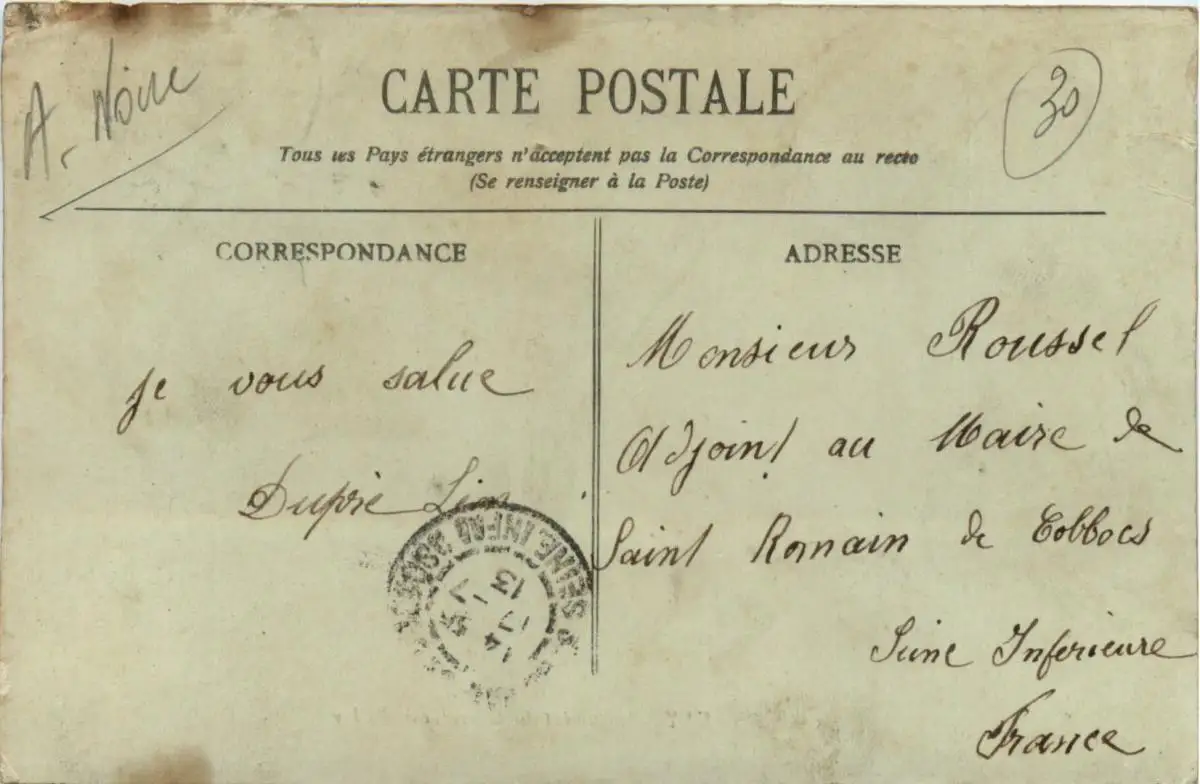 A. Noire
30
CARTE POSTALE
Tous les Pays étrangers n'acceptent pas la Correspondance au recto
(Se renseigner à la Poste)
CORRESPONDANCE
ADRESSE
je vous salue
Dupré Léon
Monsieur Roussel
Adjoint au Maire de
Saint Romain de Colbocs
Seine Inferieure
France
SEINE INFRE